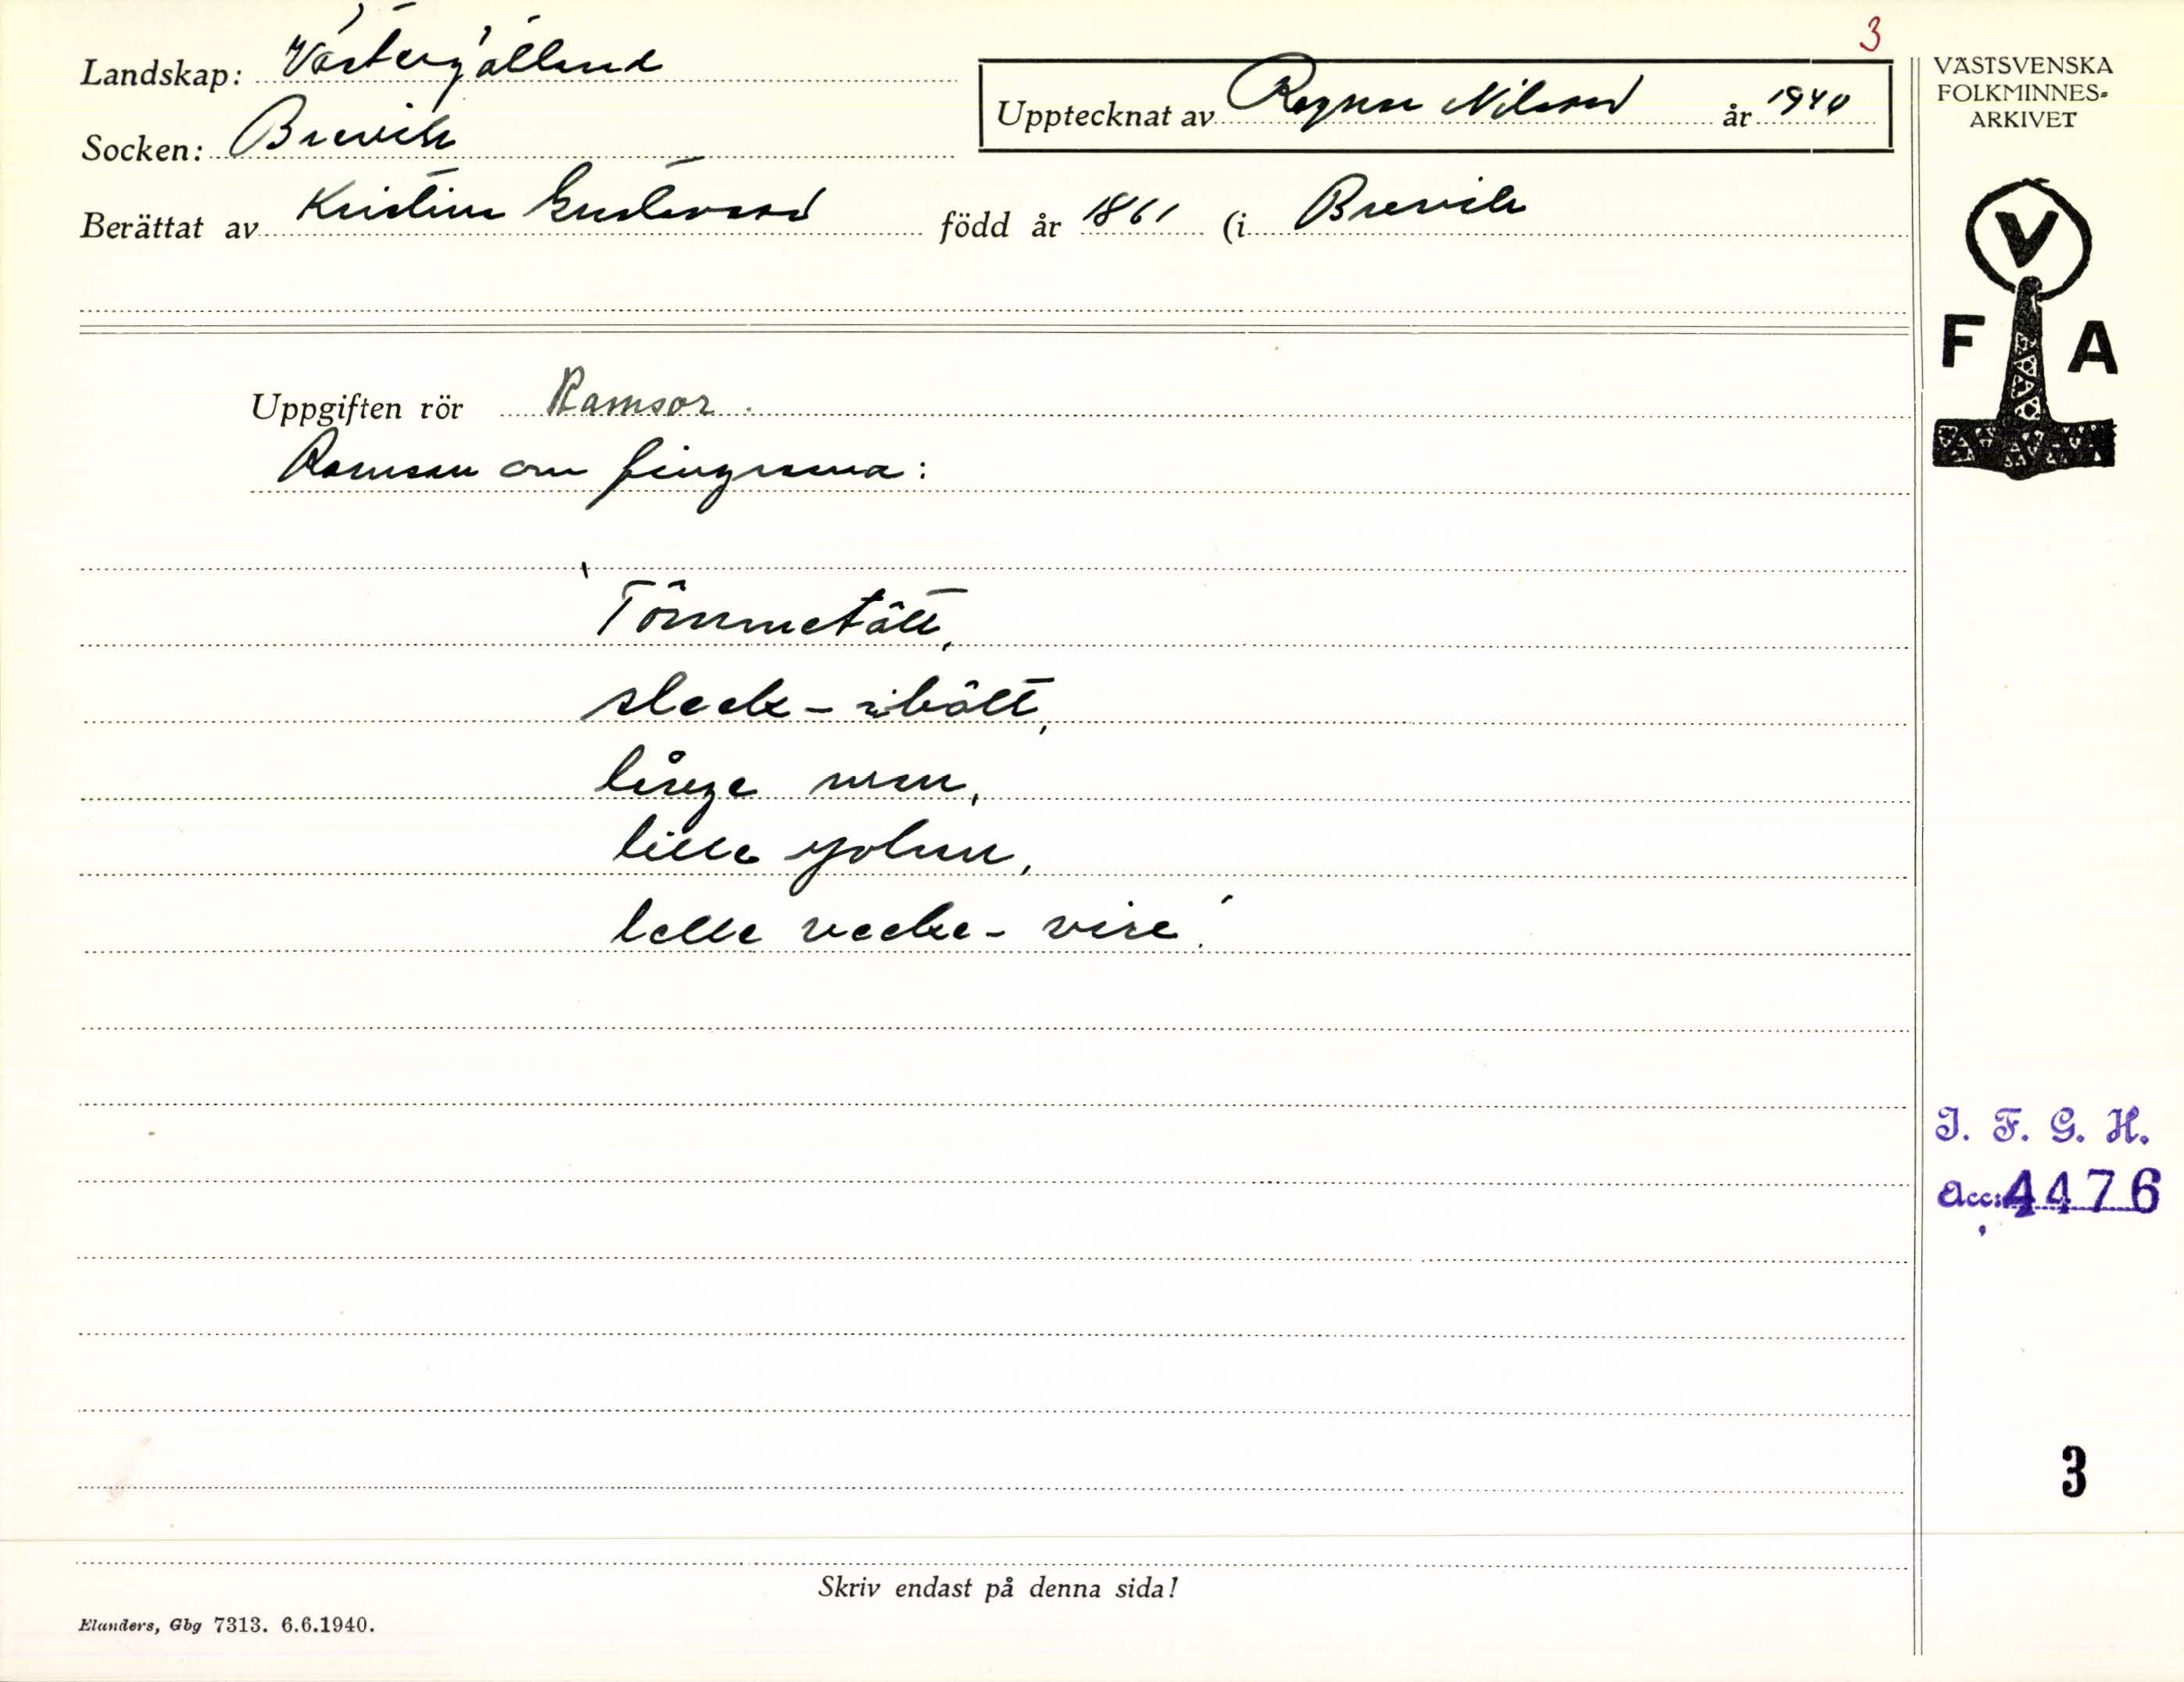 3
Landskap: Västergötland
Upptecknat av Ragnar Nilsson år 1940
VÄSTSVENSKA
FOLKMINNES-
ARKIVET
Socken: Brevik
Berättat av Kristina Gustavsson född år 1861 (i Brevik
V
F A
Uppgiften rör Ramsor.
Ramsan om fingrarna:
"Tômmetått,
sleck-
långe man,
lille
lelle vecke-vire"
I. F. G. H.
Acc: 4476
3
Skriv endast på denna sida!
Elanders, Gbg 7313. 6.6.1940.